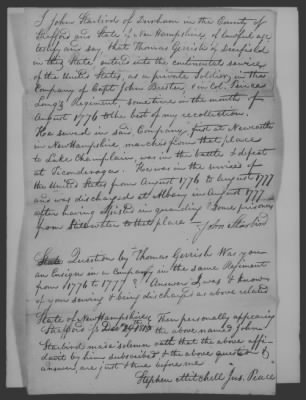 I John Starbird of Durham in the County of
Strafford and State of New Hampshire of lawful age
testify and say, that Thomas Gerrish of Deerfield
in this State, entered into the continental service
of the United States, as a private Soldier, in the
Company of Capt John Brewster, & in Col. Pierce
Long's Regiment, sometime in the month of
August 1776 to the best of my recollection.
He served in said Company, first at Newcastle
in New Hampshire, marched from that place
to Lake Champlain, was in the battle & defeat
at Ticonderoga. He was in the service of
the United States from August 1776 to August 1777
and was discharged at Albany in August 1777
after having assisted in guarding some prisoners
from Stillwater to that place —
John Starbird
Question by Thomas Gerrish Was you
an Ensign in a Company in the same Regiment
from 1776 to 1777? Answer I was & know
of your serving & being discharged as above related
State of New Hampshire
Strafford ss Then personally appearing
the above named John
Starbird made solemn oath that the above affi-
davit by him subscribed & the above question &
answer are just & true before me
Stephen Mitchell Jus. Peace